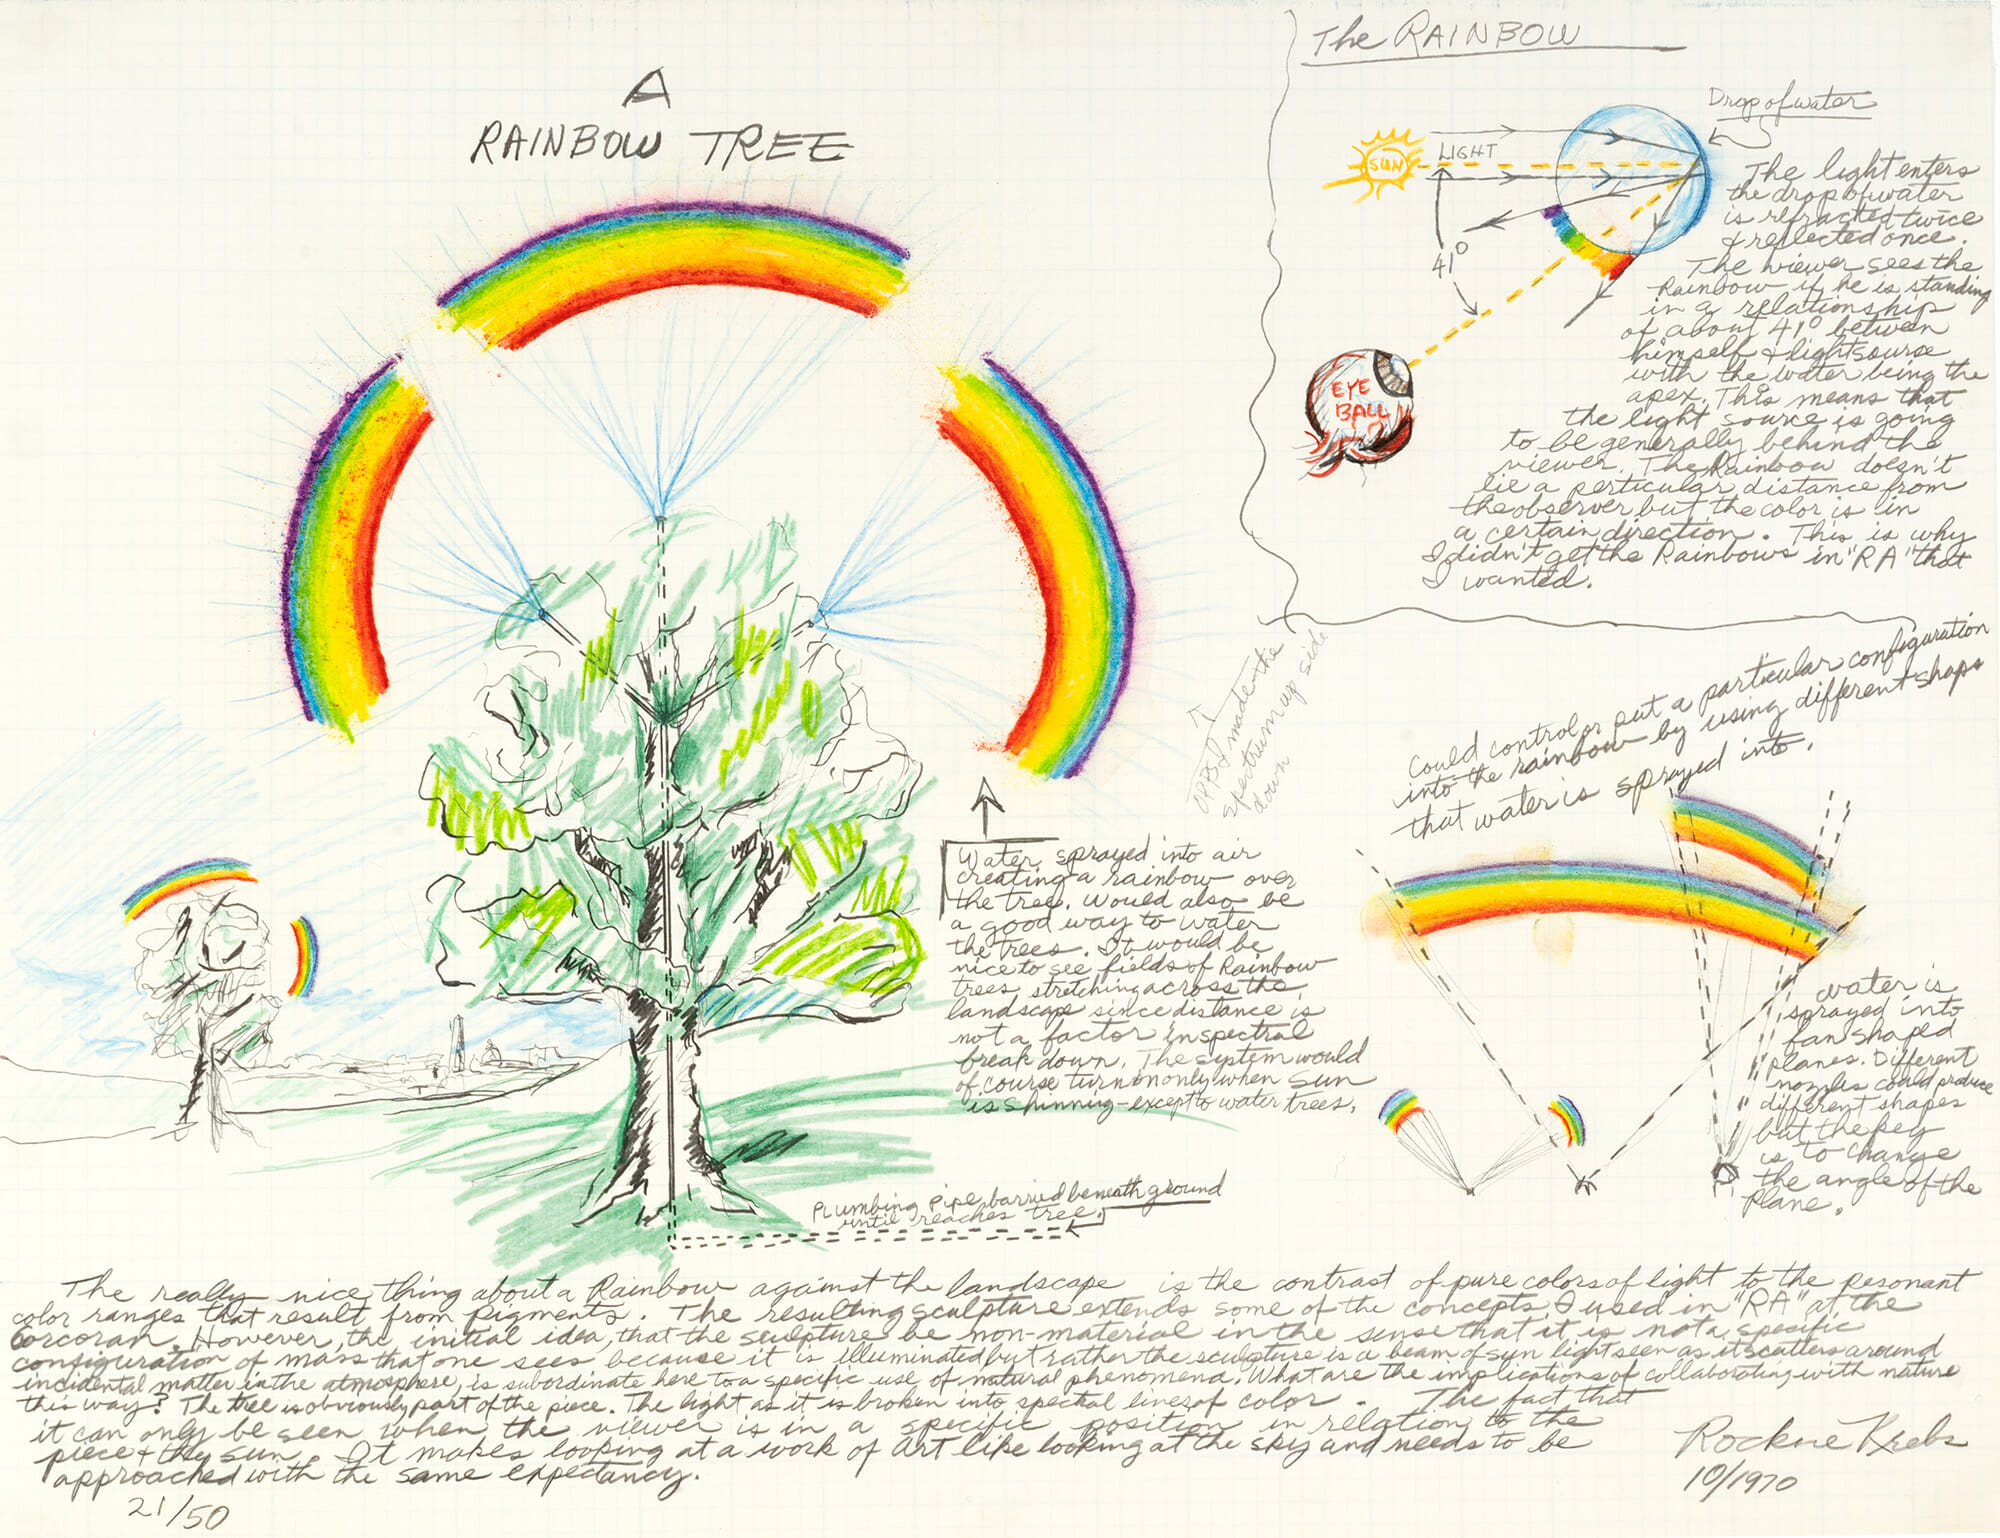 A
RAINBOW TREE
The RAINBOW
Drop of water
SUN
LIGHT
41°
EYE
BALL
The light enters
the drop of water
is refracted twice
& reflected once.
The viewer sees the
Rainbow if he is standing
in a relationship
of about 41° between
himself & lightsourse
with the water being the
apex. This means that
the light source is going
to be generally behind the
viewer. The Rainbow doesn't
lie a perticular distance from
the observer but the color is in
a certain direction. This is why
I didn't get the Rainbows in "RA" that
I wanted.
OPPS I made the
spectrum up side
down
Could control or put a particular configuration
into the rainbow by using different shaps
that water is sprayed into.
Water sprayed into air
creating a rainbow over
the tree. Would also be
a good way to water
the trees. It would be
nice to see fields of Rainbow
trees stretching across the
landscape since distance is
not a factor in spectral
break down. The system would
of course turn on only when sun
is shinning - except to water trees.
Water is
sprayed into
fan shaped
planes. Different
nozzles could produce
different shapes
but the key
is to change
the angle of the
plane.
Plumbing pipe barried beneath ground
until reaches tree.
The really nice thing about a Rainbow against the landscape is the contrast of pure colors of light to the resonant
color ranges that result from pigments. The resulting sculpture extends some of the concepts I used in "RA" at the
Corcoran. However, the initial idea, that the sculpture be non-material in the sense that it is not a specific
configuration of mass that one sees because it is illuminated but rather the sculpture is a beam of sun light seen as it scatters around
incidental matter in the atmosphere, is subordinate here to a specific use of natural phenomena. What are the implications of collaborating with nature
this way? The tree is obviously part of the piece. The light as it is broken into spectral lines of color. The fact that
it can only be seen when the viewer is in a specific position in relation to the
piece & the sun. It makes looking at a work of art like looking at the sky and needs to be
approached with the same expectancy.
Rockne Krebs
10/1970
21/50